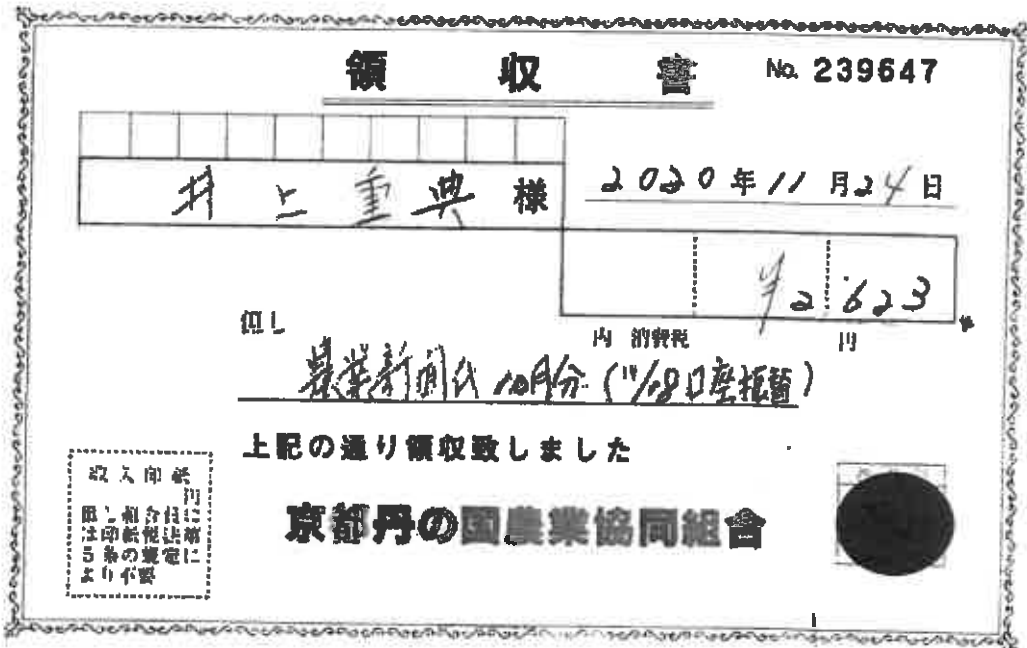 領収書
No. 239647
井上重典 様
2020年11月24日
¥2,623
但し
内 消費税 円
農業新聞代 10月分 (11/18口座振替)
上記の通り領収致しました
収入印紙
円
但し組合員に
は印紙税法第
5条の規定に
より不要
京都丹の国農業協同組合